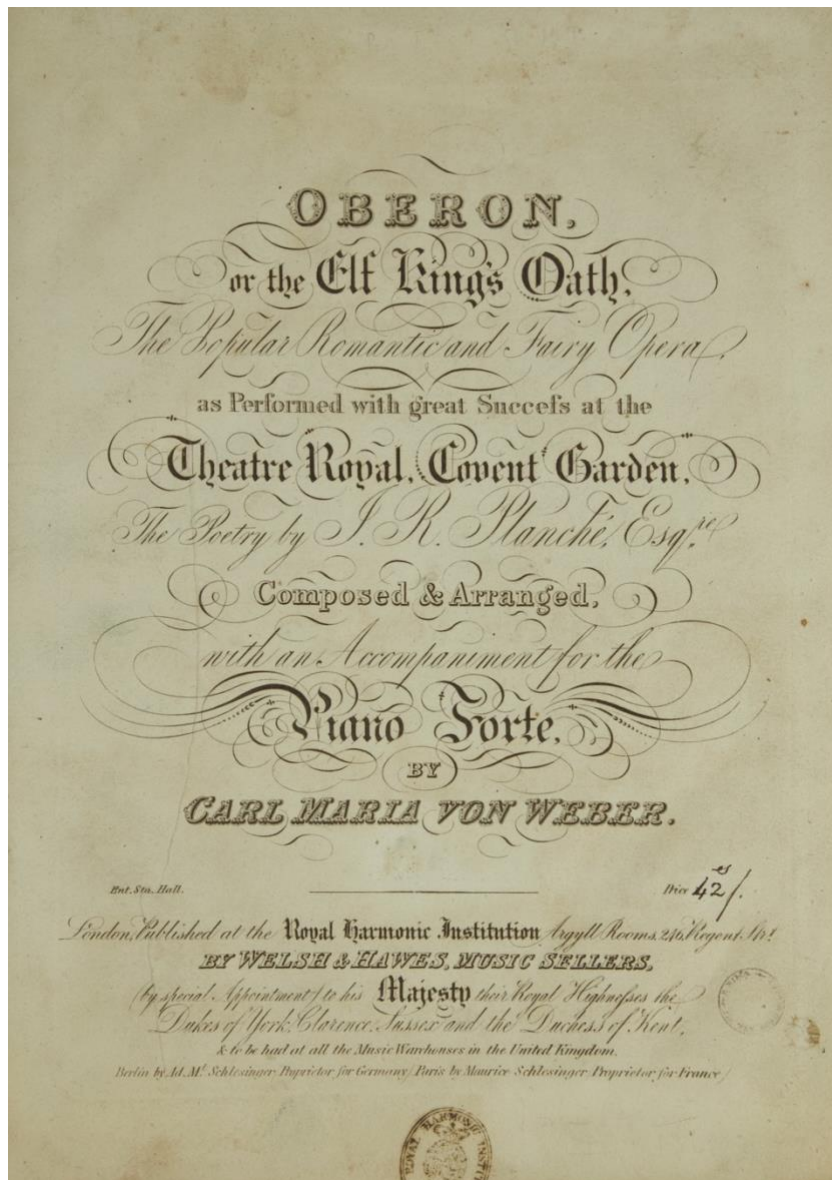 OBERON,
or the Elf King's Oath,
The Popular Romantic and Fairy Opera,
as Performed with great Succeſs at the
Theatre Royal, Covent Garden,
The Poetry by J. R. Planché, Esqre.
Composed & Arranged,
with an Accompaniment for the
Piano Forte,
BY
CARL MARIA VON WEBER.
Ent. Sta. Hall.
Price 42/.
London, Published at the Royal Harmonic Institution Argyll Rooms, 246, Regent Strt.
BY WELSH & HAWES, MUSIC SELLERS,
(by special Appointment) to his Majesty their Royal Highneſses the
Dukes of York, Clarence, Sussex and the Duchess of Kent,
& to be had at all the Music Warehouses in the United Kingdom.
Berlin by Ad. Mt. Schlesinger Proprietor for Germany, Paris by Maurice Schlesinger Proprietor for France)
ROYAL HARMONIC INSTI